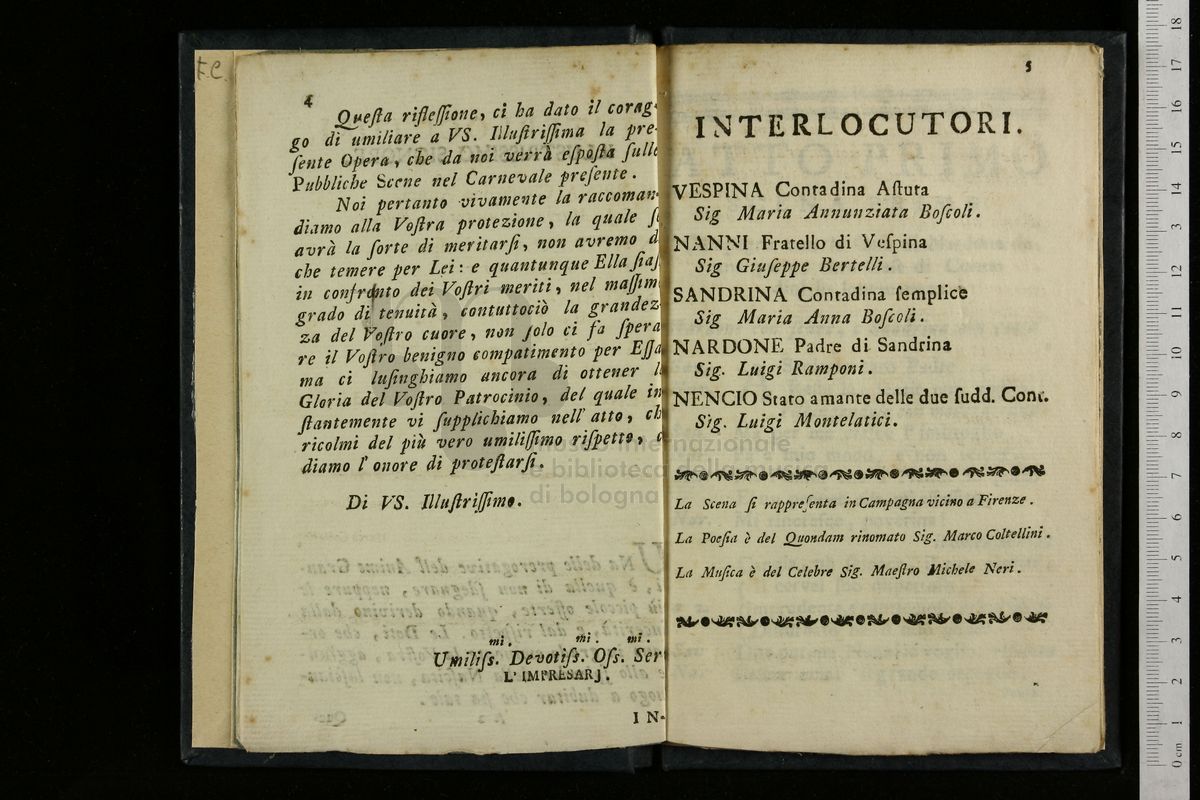 F.C.
4
Queſta rifleſſione, ci ha dato il corag-
go di umiliare a VS. Illuſtriſſima la pre-
ſente Opera, che da noi verrà eſpoſta ſulle
Pubbliche Scene nel Carnevale preſente.
Noi pertanto vivamente la raccoman-
diamo alla Voſtra protezione, la quale ſe
avrà la ſorte di meritarſi, non avremo di
che temere per Lei: e quantunque Ella ſiaſi
in confronto dei Voſtri meriti, nel maſſimo
grado di tenuità, contuttociò la grandez-
za del Voſtro cuore, non ſolo ci fa ſpera
re il Voſtro benigno compatimento per Eſſa
ma ci luſinghiamo ancora di ottener la
Gloria del Voſtro Patrocinio, del quale in
ſtantemente vi ſupplichiamo nell' atto, ch
ricolmi del più vero umiliſſimo riſpetto,
diamo l' onore di proteſtarſi.
Di VS. Illuſtriſſimo.
mi. mi. mi.
Umiliſs. Devotiſs. Oſs. Ser
L' IMPRESARJ.
IN-
5
INTERLOCUTORI.
VESPINA Contadina Aſtuta
Sig Maria Annunziata Boſcoli.
NANNI Fratello di Veſpina
Sig Giuſeppe Bertelli.
SANDRINA Contadina ſemplice
Sig Maria Anna Boſcoli.
NARDONE Padre di Sandrina
Sig. Luigi Ramponi.
NENCIO Stato amante delle due ſudd. Cont.
Sig. Luigi Montelatici.
La Scena ſi rappreſenta in Campagna vicino a Firenze.
La Poeſia è del Quondam rinomato Sig. Marco Coltellini.
La Muſica è del Celebre Sig. Maeſtro Michele Neri.
museo internazionale
e biblioteca della musica
di bologna
0 cm. 1 2 3 4 5 6 7 8 9 10 11 12 13 14 15 16 17 18